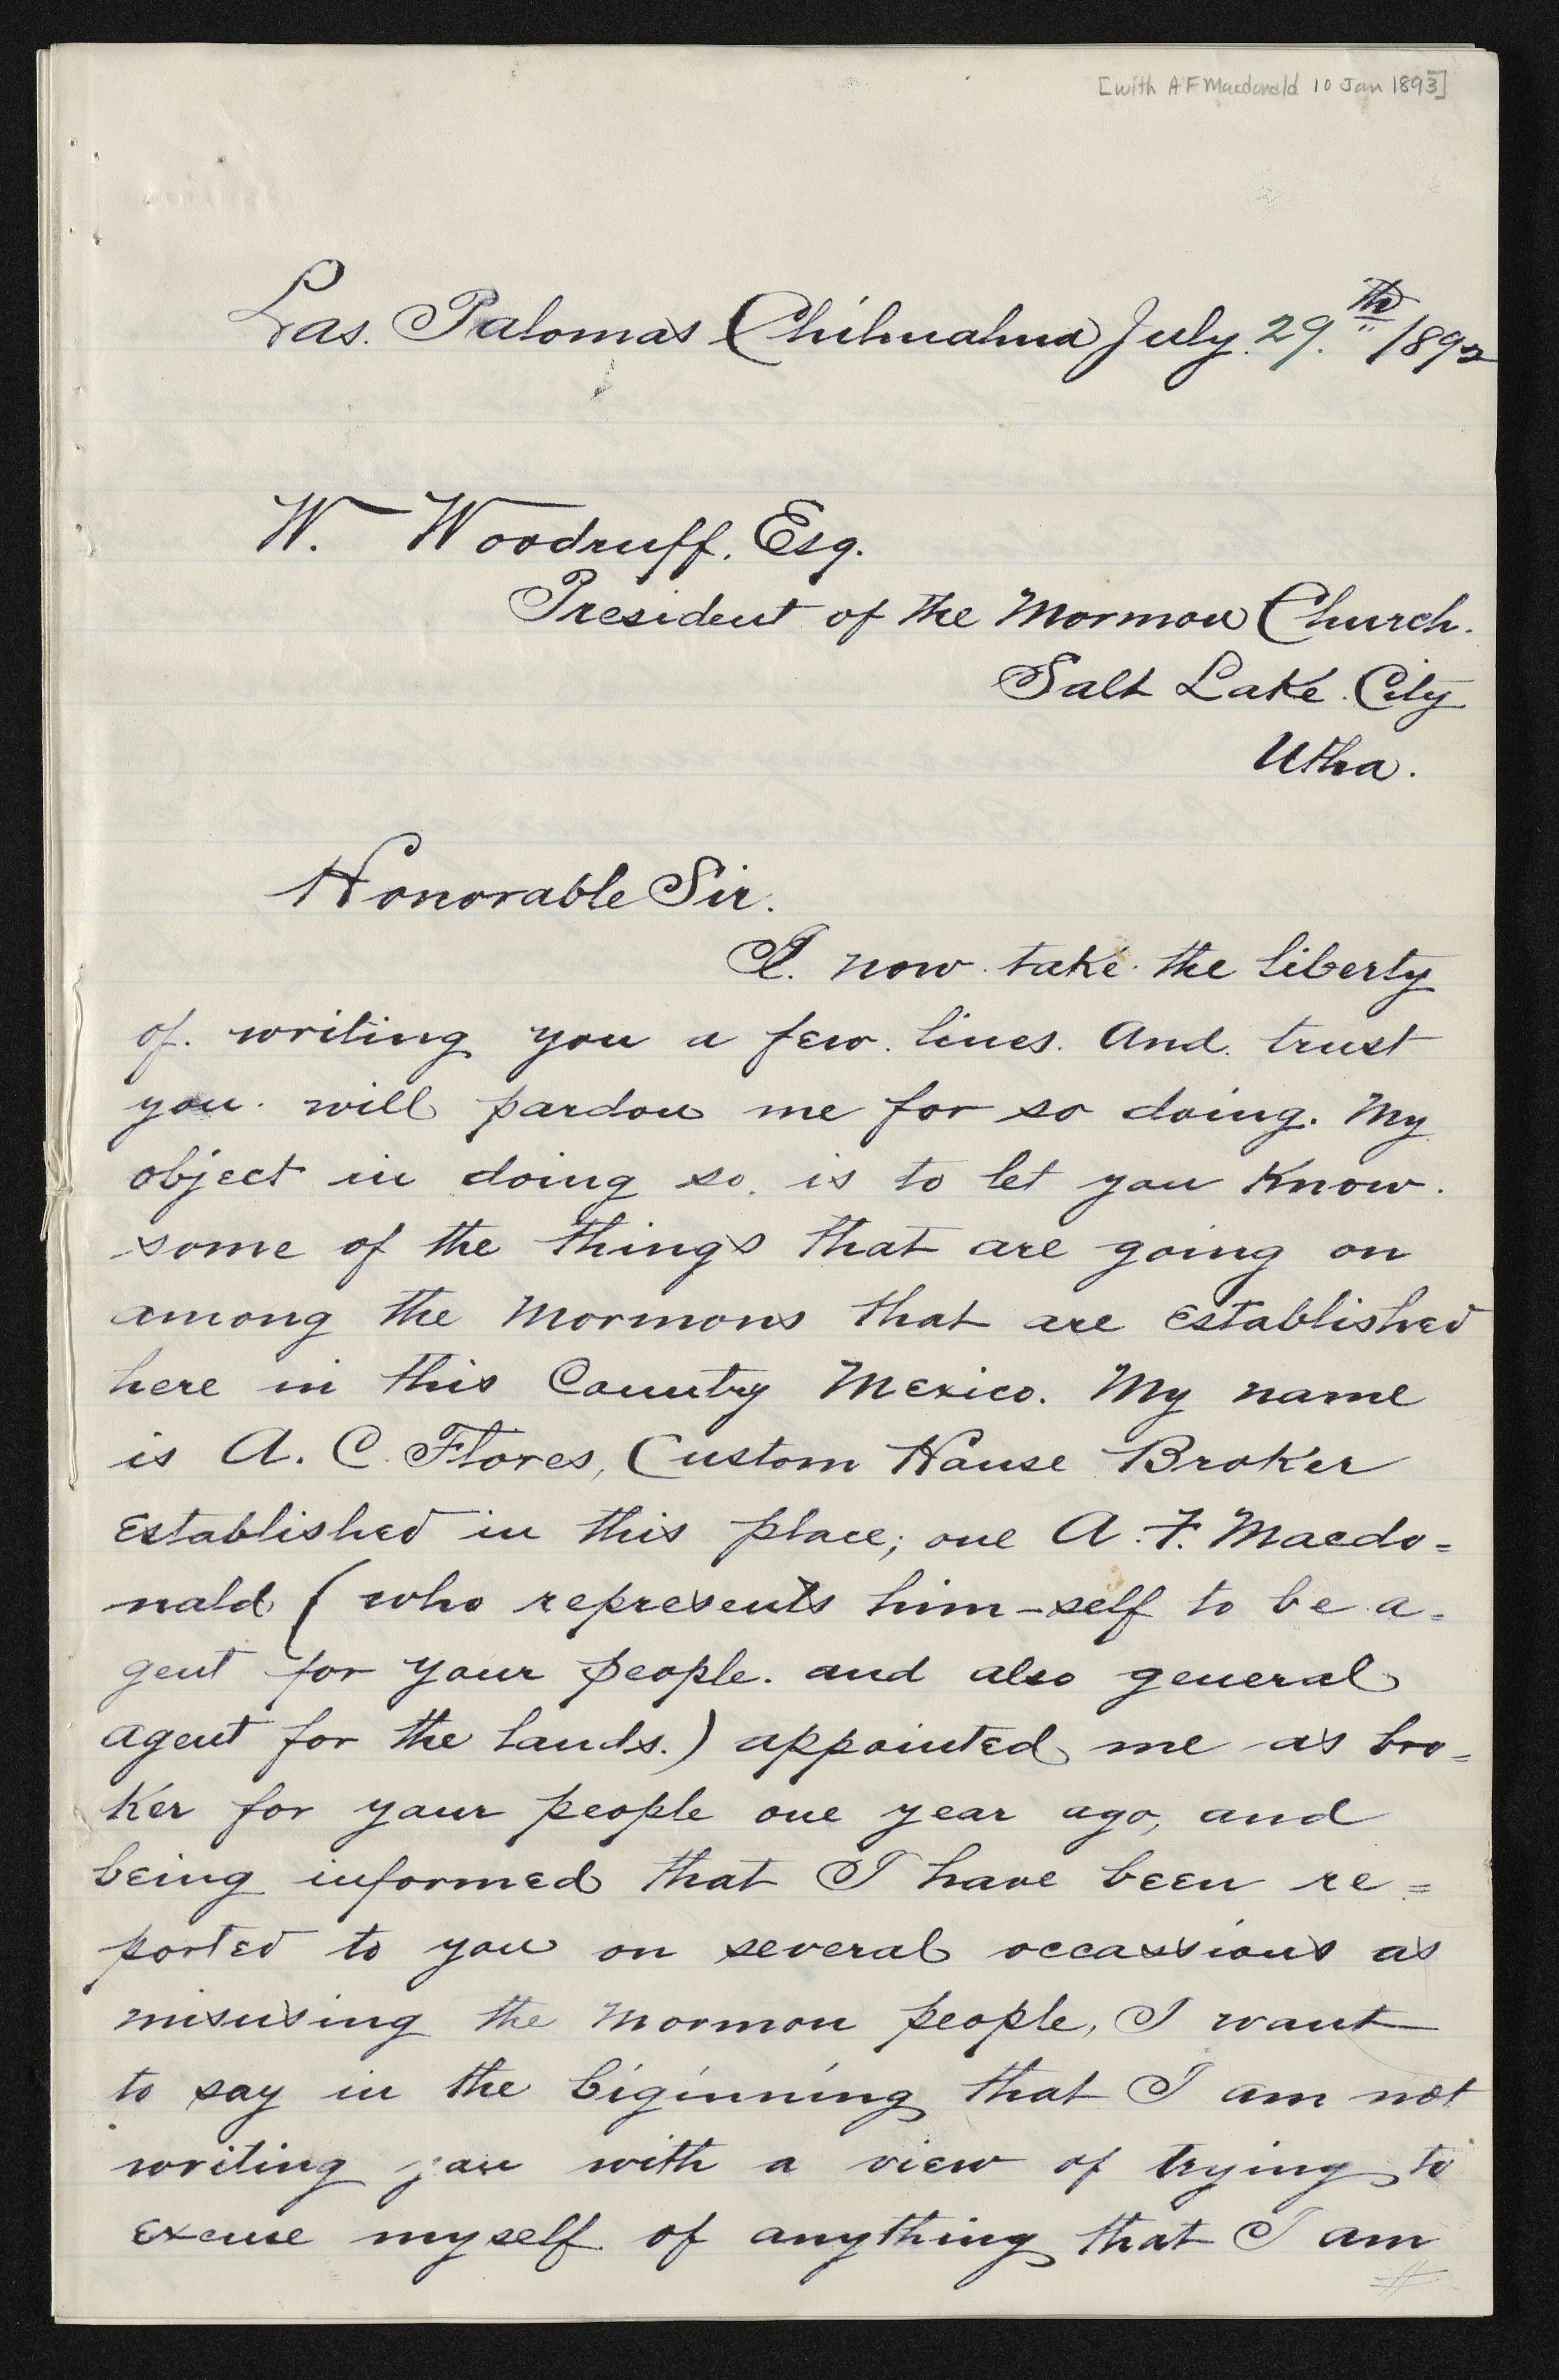 [with A F Macdonald 10 Jan 1893]
Las. Palomas Chihuahua July. 29.th 1892
W. Woodruff. Esq.
President of the Mormon Church.
Salt Lake. City
Utha.
Honorable Sir.
I. now. take. the liberty
of. writing you a few. lines. And. trust
you. will pardon me for so doing. My
object in doing so. is to let you Know.
some of the things that are going on
among the Mormons that are established
here in this Country Mexico. My name
is A. C. Flores, Custom House Broker
established in this place; one A. F. Macdo=
nald (who represents him-self to be a=
gent for your people. and also general
agent for the lands.) appointed me as bro=
Ker for your people one year ago, and
being informed that I have been re=
ported to you on several occassions as
misusing the Mormon people, I want
to say in the biginning that I am not
writing you with a view of trying to
excuse myself. of anything that I am